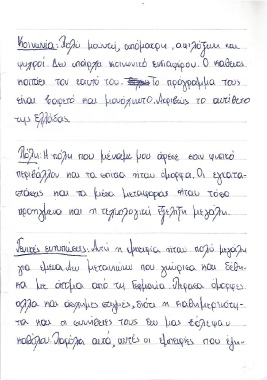 Κοινωνία: Πολύ μουντή, απόμακρη, αφιλόξενη και
ψυχρή. Δεν υπάρχει κοινωνικό ενδιαφέρον. Ο καθένας
κοιτάει τον εαυτό του. Το πρόγραμμα τους
είναι βαρετό και μονότονο. Ακριβώς το αντίθετο
της Ελλάδας.
Πόλη: Η πόλη που μέναμε μου άρεσε σαν φυσικό
περιβάλλον και τα σπίτια ήταν όμορφα. Οι εγκατα-
στάσεις και τα μέσα μεταφοράς ήταν τόσο
προηγμένα και η τεχνολογική εξέλιξη μεγάλη.
Γενικές εντυπώσεις: Αυτή η εμπειρία ήταν πολύ μεγάλη
για εμένα. Δεν μετανιώνω που γνώρισα και δέθη-
κα με άτομα από τη Γερμανία. Πέρασα όμορφες
αλλά και άσχημες στιγμές, διότι η καθημερινότη-
τα και οι συνήθειές τους δεν μας εξέλεψαν
καθόλου. Παρόλα αυτά, αυτές οι εμπειρίες που έχη-